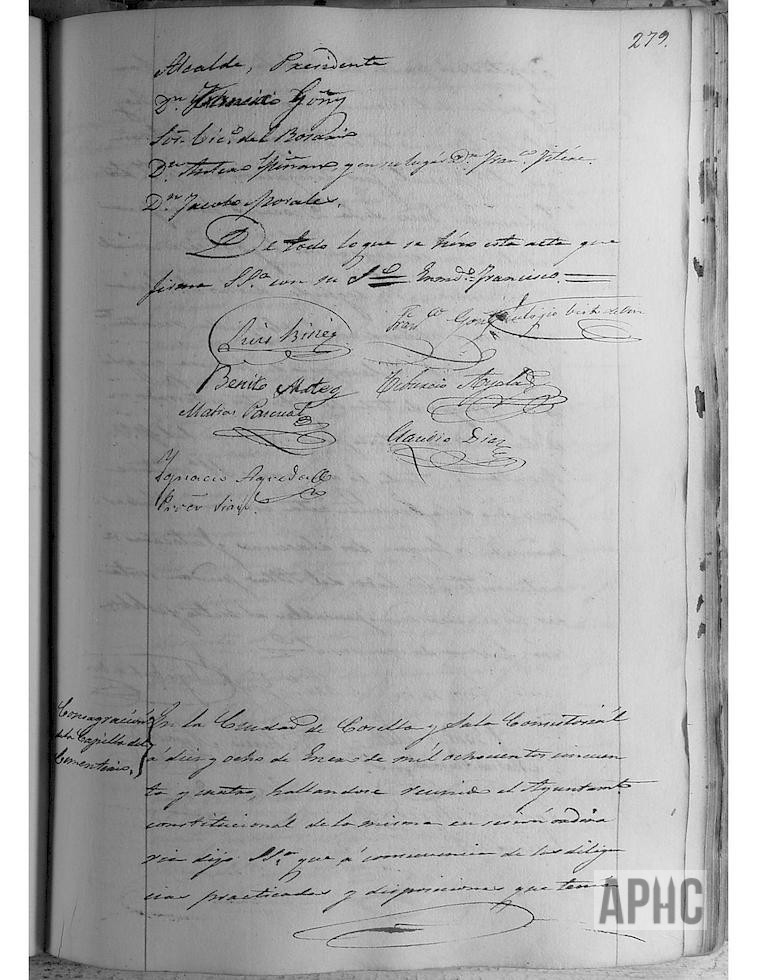 279.
Alcalde, Presidente
Dn Francisco Goñy
Sor. Vic. del Rosario
Dn y en su lugar Dn Franco
Dn Jacobo Morales.
De todo lo que se hizo esta acta que
firma SSa con su Sº Enmdo = Francisco. =
Luis Franco Goñi Eulogio
Benito Mateo Tiburcio Ayala
Matias Pascual
Claudio Diaz
Ygnacio Agreda
Procor Sindo.
Consagración
de la Capilla del
Cementerio.
En la Ciudad de Corella y Sala Consistorial
á diez y ocho de Enero de mil ochocientos cincuen
ta y cuatro, hallandose reunido el Ayuntamto
constitucional de la misma en sesión ordina
ria dijo SSa que á consecuencia de las dilign
cias practicadas y disposiciones que tenia
APHC